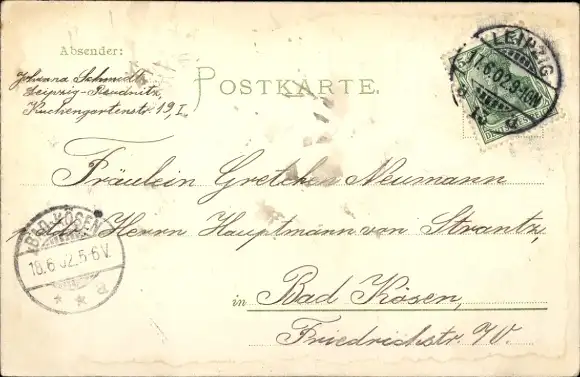 Absender:
Johanna Schmidt
Leipzig-Reudnitz,
Kuchengartenstr. 19, I.
POSTKARTE.
LEIPZIG
17.6.02.9-10N
Fräulein Gretchen Neumann
adr. Herrn Hauptmann von Strantz,
in Bad Kösen,
Friedrichstr.
BAD KÖSEN
18.6.02.5-6V.
* * a